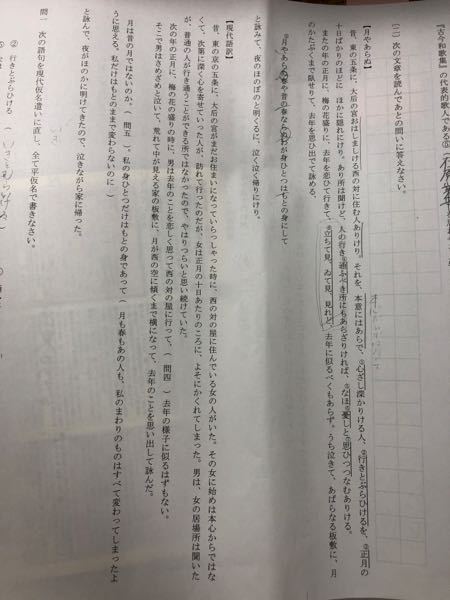 『古今和歌集』の代表的歌人である
(二) 次の文章を読んであとの問いに答えなさい。
【月やあらぬ】
昔、東の五条に、大后の宮おはしましける西の対に住む人ありけり。それを、本意にはあらで、①心ざし深かりける人、②行きとぶらひけるを、③正月の
十日ばかりのほどに ほかに隠れにけり。あり所は聞けど、人の行き通ふべき所にもあらざりければ、なほ憂しと思ひつつなむありける。
またの年の正月に、梅の花盛りに、去年を恋ひて行きて、立ちて見、ゐて見、見れど、去年に似るべくもあらず。うち泣きて、あばらなる板敷に、月
のかたぶくまで臥せりて、去年を思ひ出でて詠める、
月やあらぬ春や昔の春ならぬわが身ひとつはもとの身にして
と詠みて、夜のほのぼのと明くるに、泣く泣く帰りにけり。
【現代語訳】
昔、東の京の五条に、大后の宮がまだお住まいになっていらっしゃった時に、西の対の屋に住んでいる女の人がいた。その女に始めは本心からではな
くて、次第に深く心を寄せていった人が、訪れて行ったのだが、女は正月の十日あたりのころに、よそにかくれてしまった。男は、女の居場所は聞いた
が、普通の人が行き通うことができる所ではなかったので、やはりつらいと思い続けていた。
次の年の正月に、梅の花の盛りの時に、男は去年のことを恋しく思って西の対の屋に行って、( 問四 )去年の様子に似るはずもない。
そこで男はさめざめと泣いて、荒れて中が見える家の板敷に、月が西の空に傾くまで横になって、去年のことを思い出して詠んだ。
月は昔の月ではないのか。( 問五 )。私の身ひとつだけはもとの身であって( 月も春もあの人も、私のまわりのものはすべて変わってしまったよ
うに思える。私だけはもとのままで変わらないのに )
と詠んで、夜がほのかに明けてきたので、泣きながら家に帰った。
問一 次の語句を現代仮名遣いに直し、全て平仮名で書きなさい。
② 行きとぶらひける (